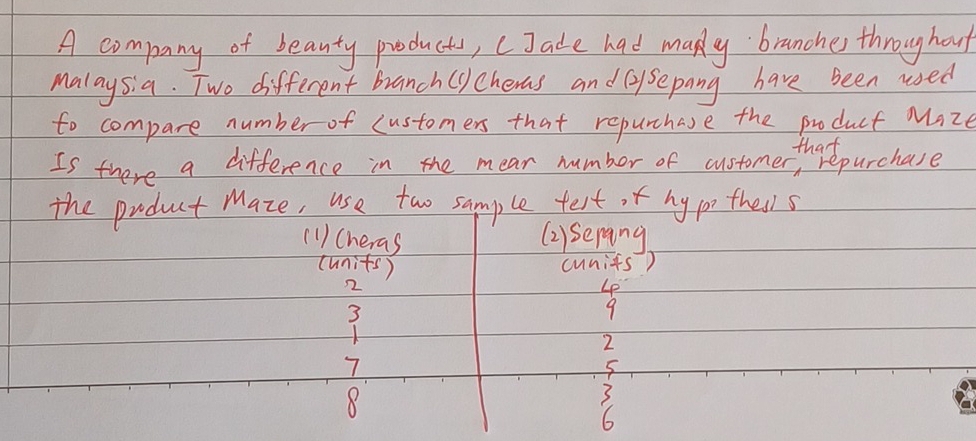 A company of beauty products, C Jade had many branches throughout
Malaysia. Two different branch (1) Cheras and (2) Sepang have been used
to compare number of customers that repurchase the product Maze
Is there a difference in the mean number of customer that repurchase
the product Maze, use two sample test of hypothesis
(1) Cheras (2) Sepang
(units) (units)
2 4
3 9
1 2
7 5
8 3
6